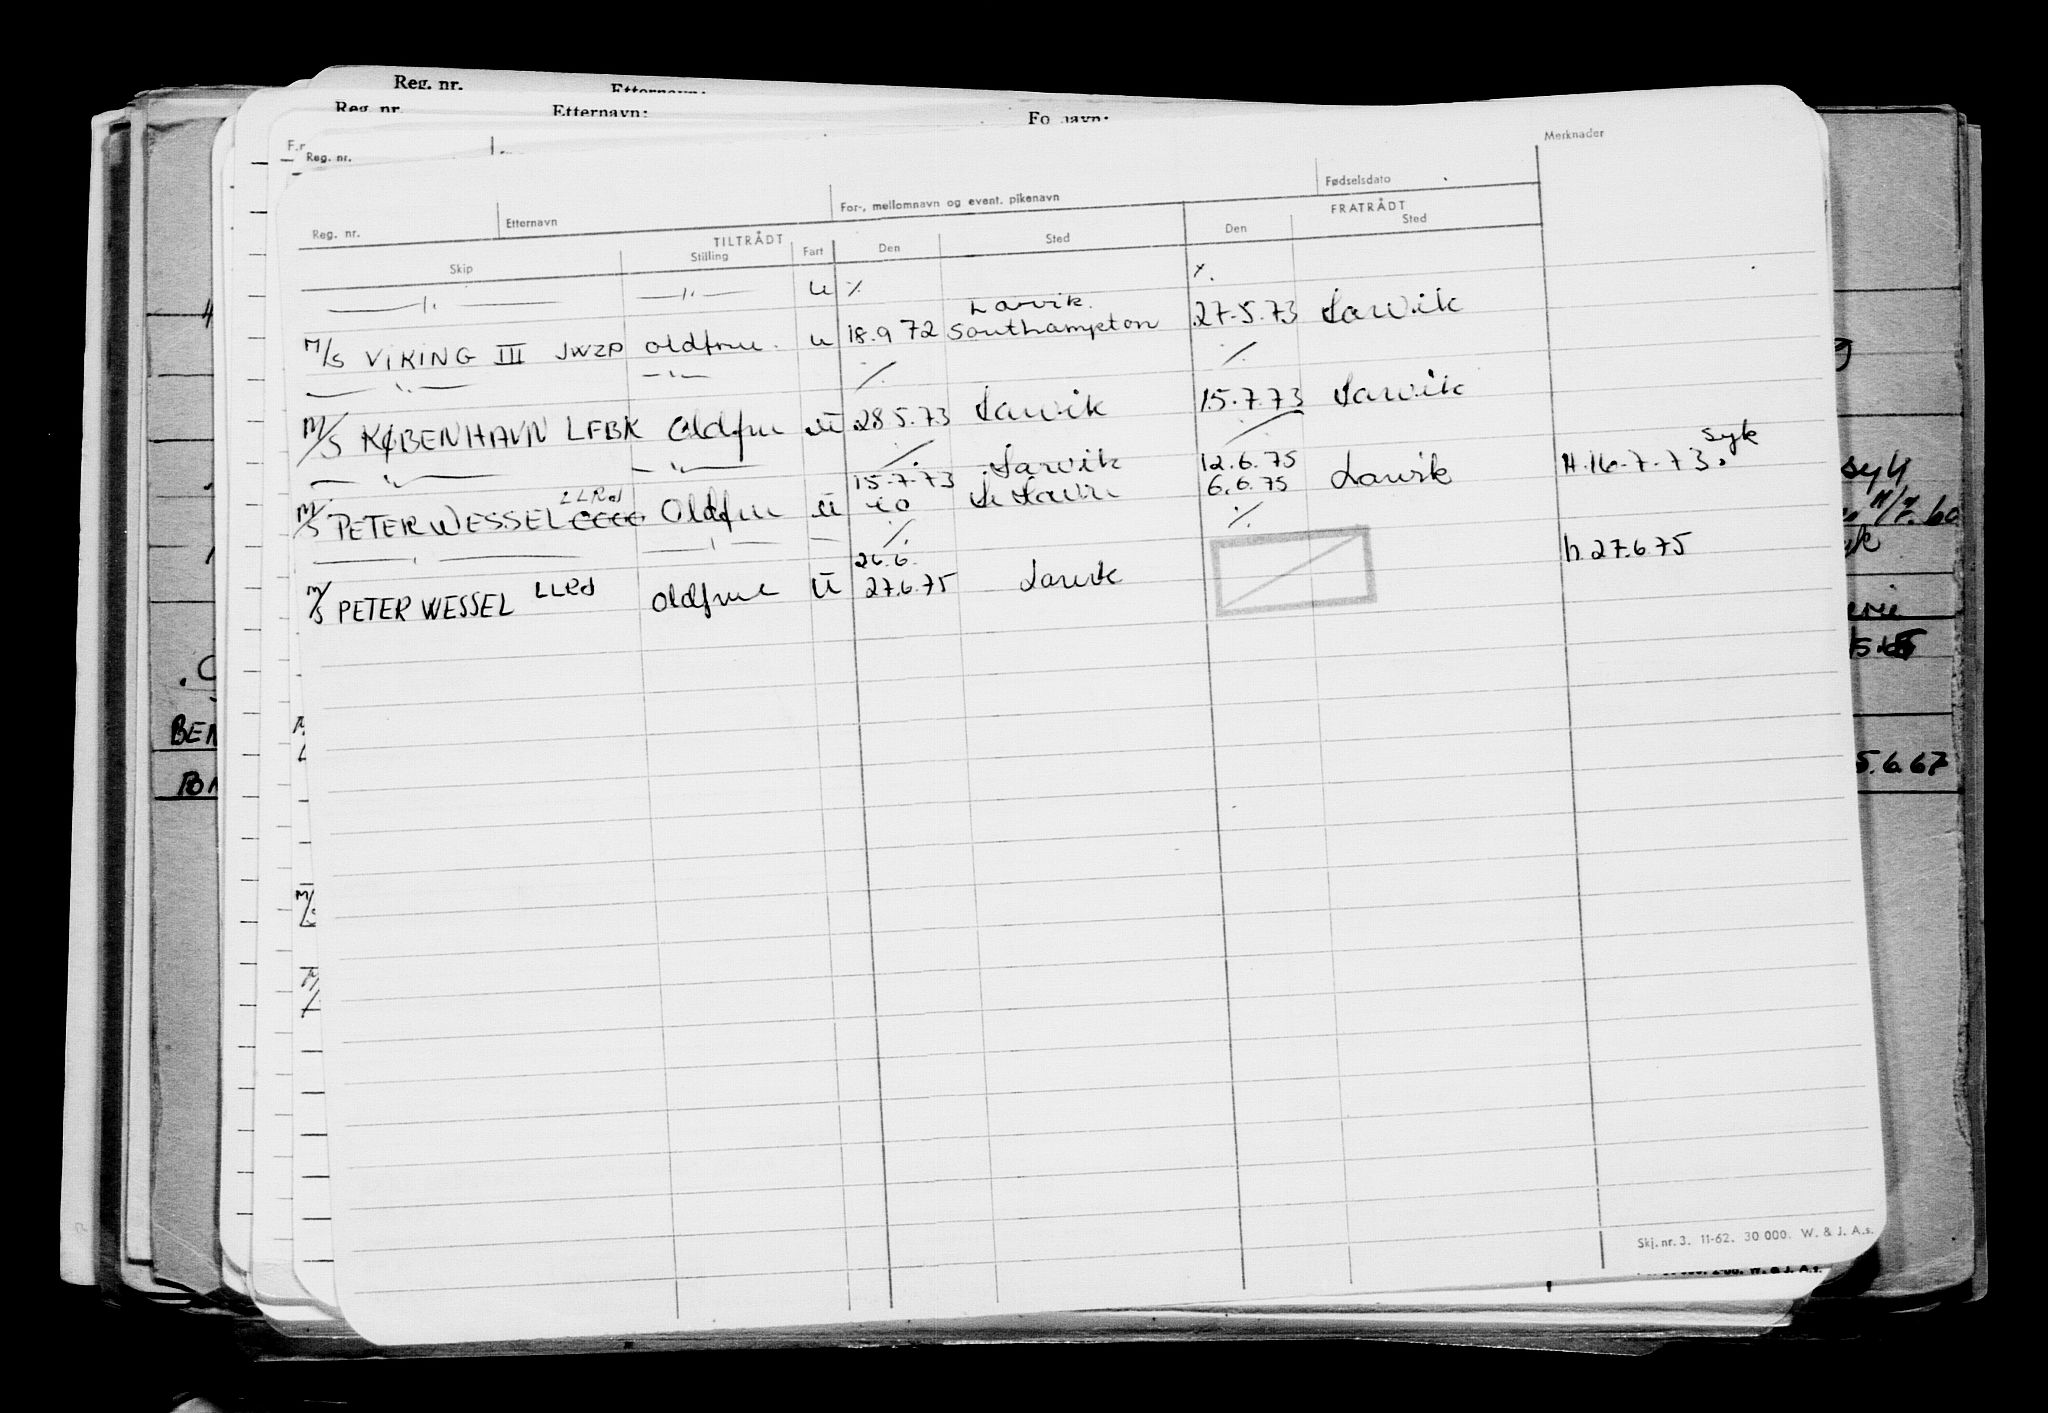 Reg. nr. Etternavn:
Reg. nr. Etternavn: Fo navn:
F.r
Reg. nr. Merknader
Fødselsdato
Reg. nr. Etternavn For-, mellomnavn og event. pikenavn
TILTRÅDT FRATRÅDT
Skip Stilling Fart Den Sted Den Sted
—"— —"— u % %
Larvik.
M/S VIKING III JWZP oldfrue. u 18.9 72 Southampton 27.5.73 Larvik
—"— —"— % %
M/S KØBENHAVN LFBK Oldfrue U 28.5.73 Larvik 15.7.73 Larvik
—"— —"— % %
15.7.73 Larvik 12.6.75 H.16.7.73 syk
M/S PETER WESSEL LLRd Oldfrue U 6.6.75 Larvik
—"— —"— — % %
26.6. h.27.6.75
M/S PETER WESSEL LLRd oldfrue U 27.6.75 Larvik
syk
BEN
5.6.67
Skj. nr. 3. 11-62. 30 000. W. & J. A.s.
W. & J. A.s.